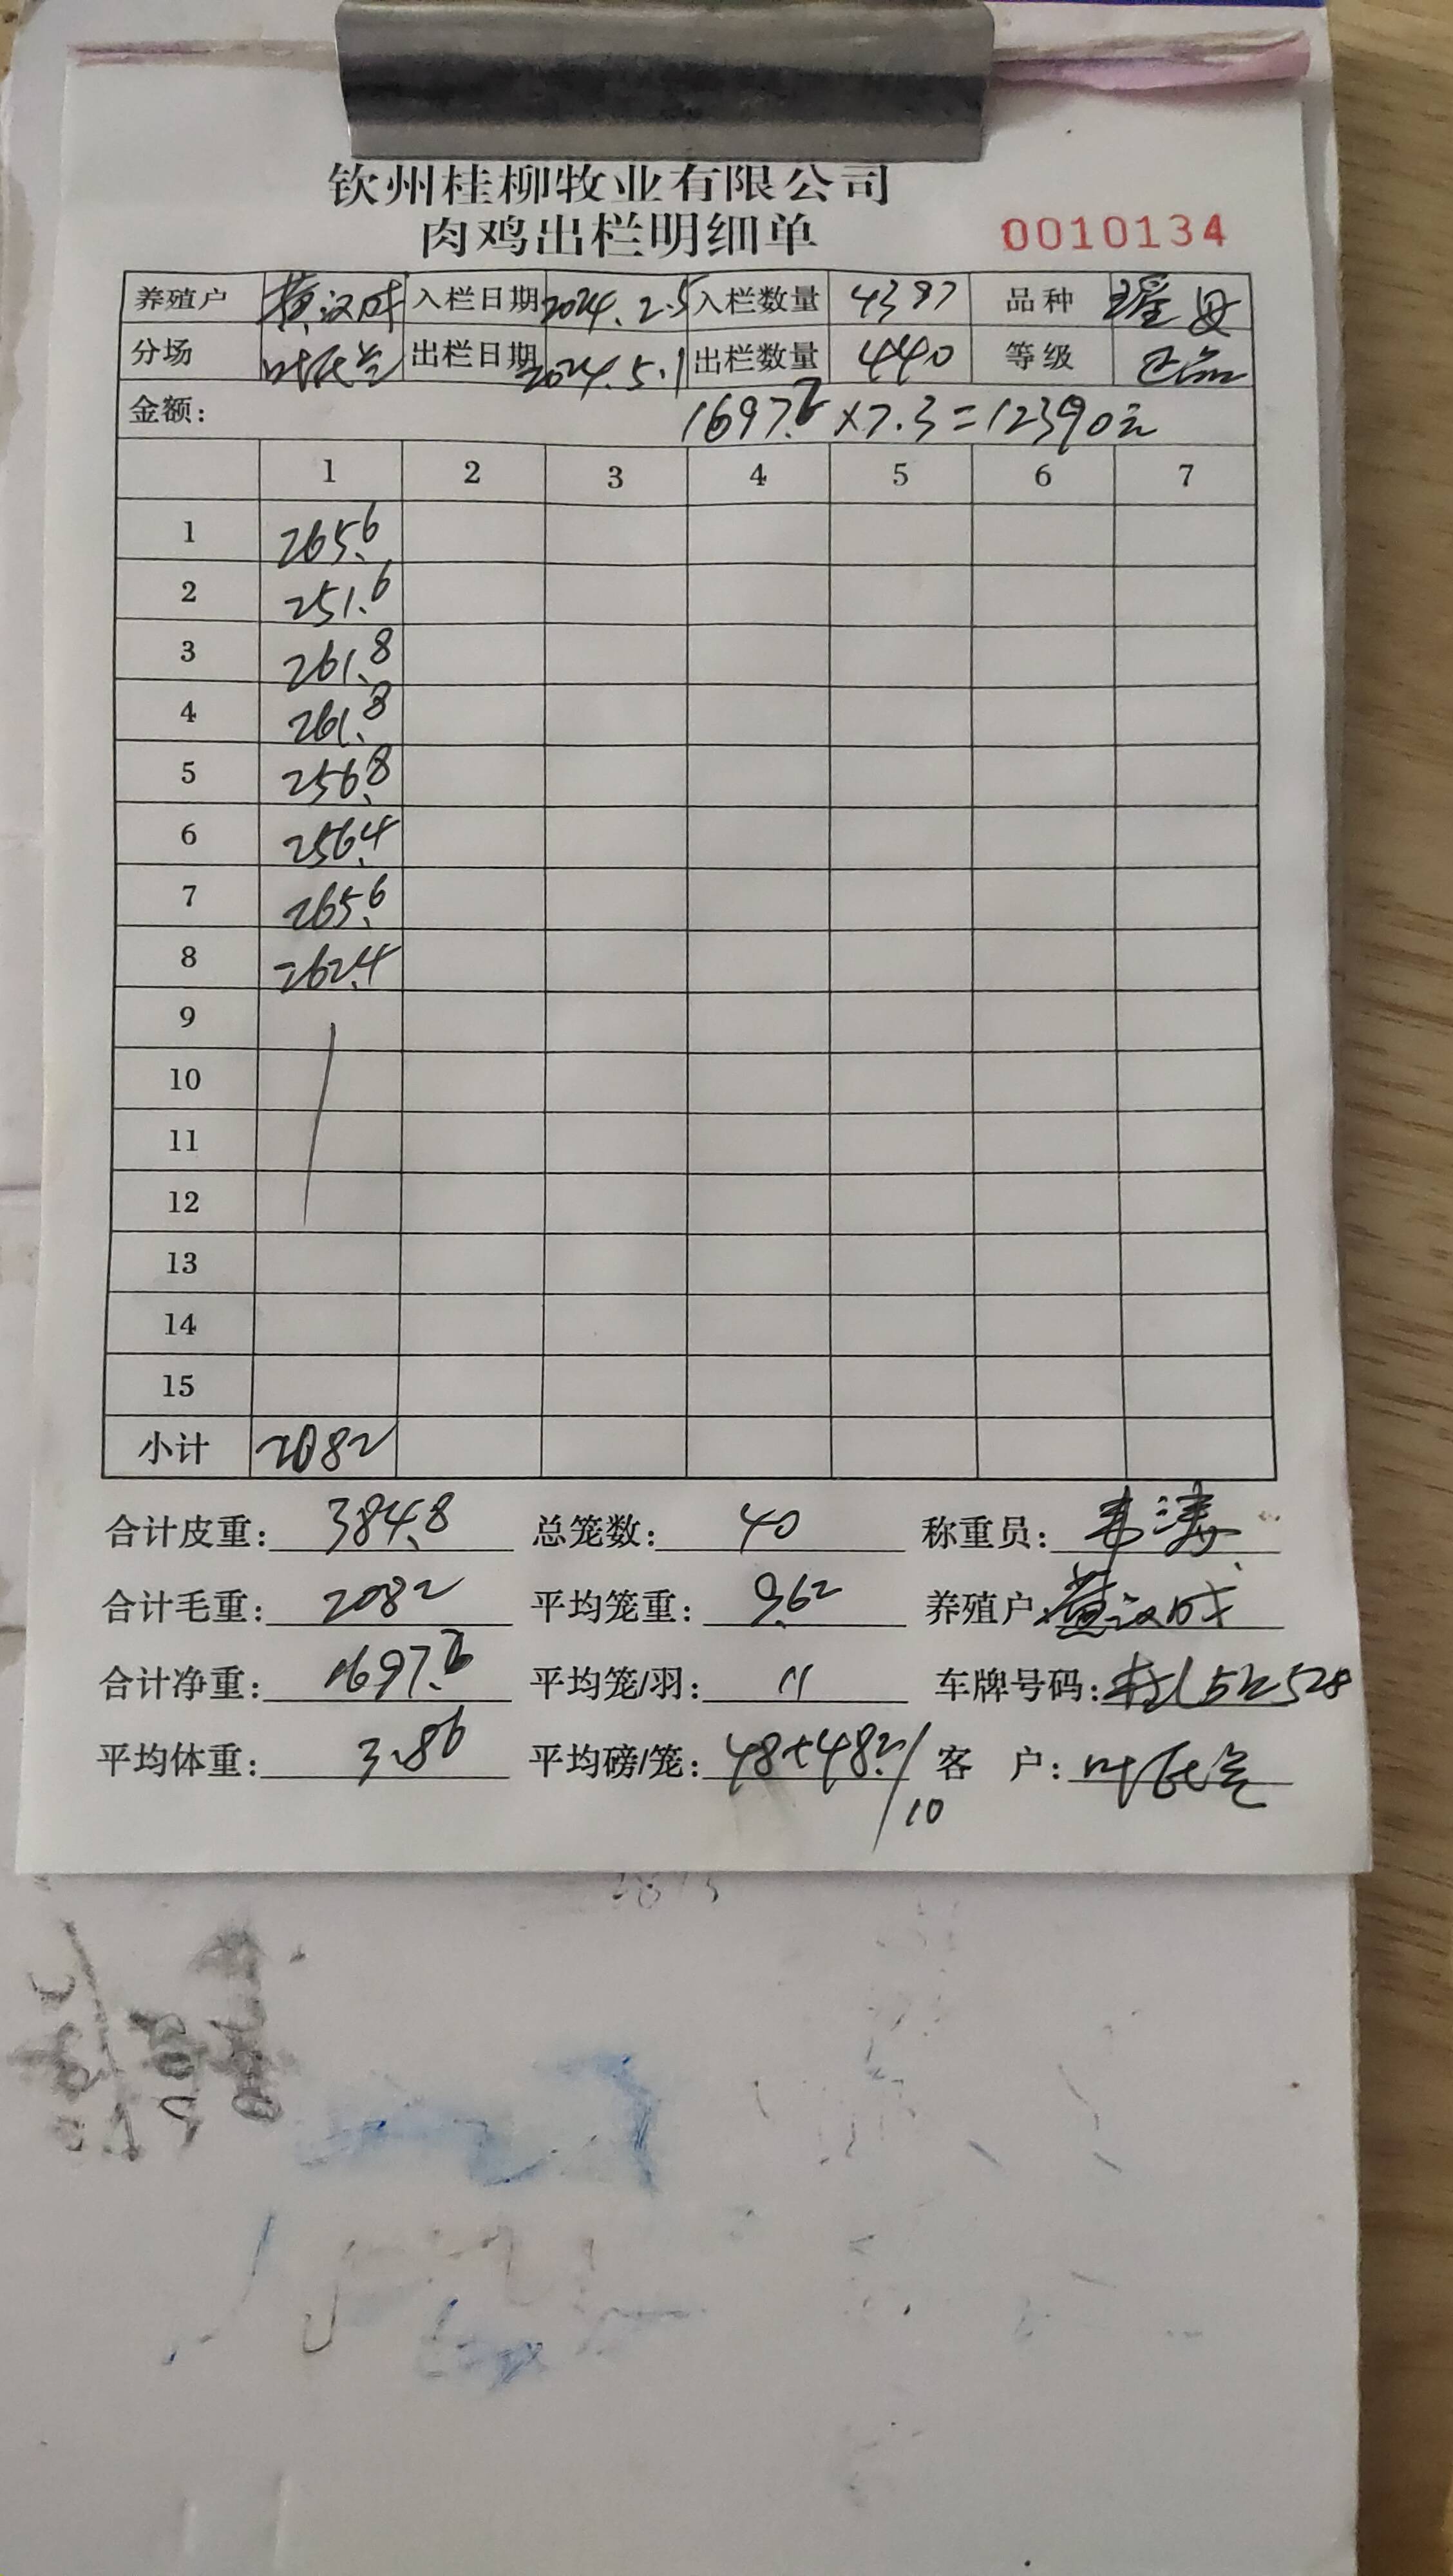 钦州桂柳牧业有限公司
肉鸡出栏明细单 0010134
养殖户 黄汉成 入栏日期 2024.2.5 入栏数量 4397 品种 瑶 母
分场 叶 出栏日期 2024.5.1 出栏数量 440 等级 正品
金额: 1697.2×7.3=12390元
1 2 3 4 5 6 7
1 265.6
2 251.6
3 261.8
4 261.8
5 256.8
6 256.4
7 265.6
8 262.4
9
10
11
12
13
14
15
小计 2082
合计皮重: 384.8 总笼数: 40 称重员: 韦涛
合计毛重: 2082 平均笼重: 9.62 养殖户: 黄汉成
合计净重: 1697.2 平均笼/羽: 11 车牌号码:
平均体重: 3.86 平均磅/笼: 48+48.2/10 客 户: 叶